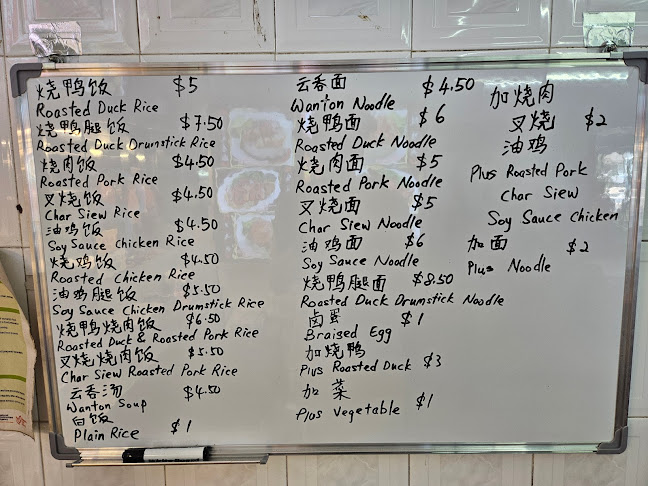 烧鸭饭 $5
Roasted Duck Rice
烧鸭腿饭 $7.50
Roasted Duck Drumstick Rice
烧肉饭 $4.50
Roasted Pork Rice
叉烧饭 $4.50
Char Siew Rice
油鸡饭 $4.50
Soy Sauce Chicken Rice
烧鸡饭 $4.50
Roasted Chicken Rice
油鸡腿饭 $5.50
Soy Sauce Chicken Drumstick Rice
烧鸭烧肉饭 $6.50
Roasted Duck & Roasted Pork Rice
叉烧烧肉饭 $5.50
Char Siew Roasted Pork Rice
云吞汤 $4.50
Wanton Soup
白饭
Plain Rice $1
云吞面 $4.50
Wanton Noodle
烧鸭面 $6
Roasted Duck Noodle
烧肉面 $5
Roasted Pork Noodle
叉烧面 $5
Char Siew Noodle
油鸡面 $6
Soy Sauce Noodle
烧鸭腿面 $8.50
Roasted Duck Drumstick Noodle
卤蛋 $1
Braised Egg
加烧鸭
Plus Roasted Duck $3
加菜
Plus Vegetable $1
加烧肉
叉烧 $2
油鸡
Plus Roasted Pork
Char Siew
Soy Sauce Chicken
加面 $2
Plus Noodle